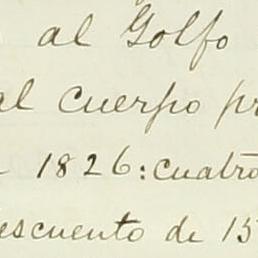 al Golfo
al cuerpo pr
1826: cuatro
escuento de 15